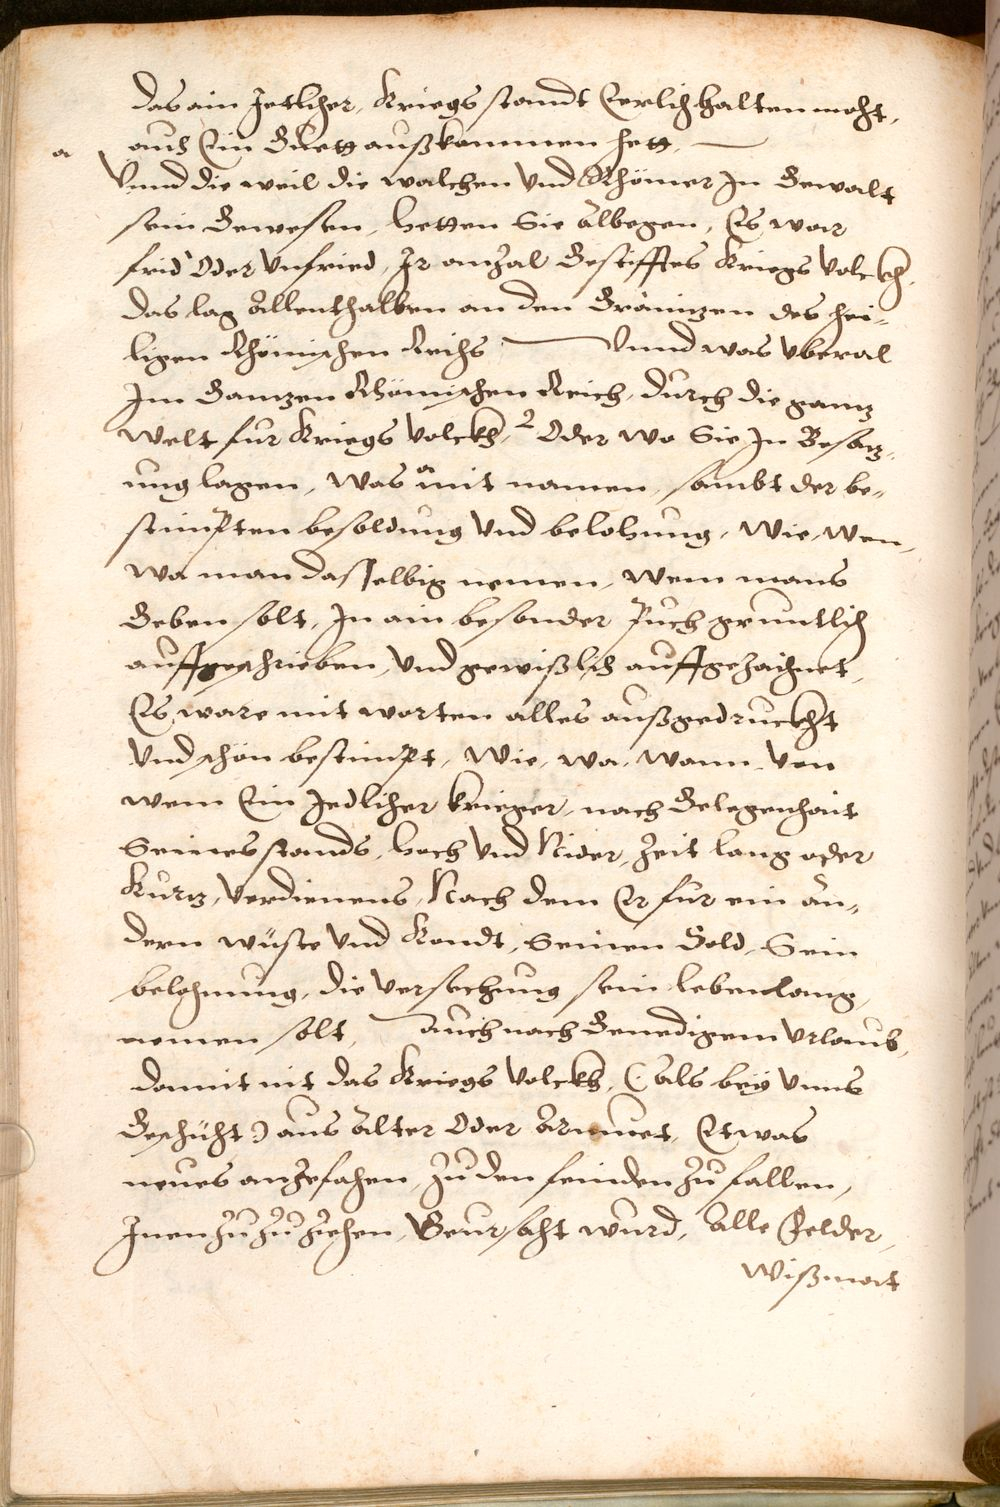 das ain Jetlicher, Kriegs standt Eerlich halten mocht,
auch Ein Guett außkommen hett.
a Unnd die weil die walchen und Rhömer In Gewalt
sein Gewesen, hetten Sie Albegen, Es war
frid Oder Unfried, Ir anzal Gestifftes Kriegs Volckh,
das lag Allenthalben an den Gränitzen des hei-
ligen Rhömischen Reichs Unnd was Uberal
Im Gantzen Rhömischen Reich, durch die gantz
Welt fur Kriegs Volckh, 2 Oder wo Sie In Besatz-
ung lagen, Was a mit namen, sambt der be-
stimpten besoldung Und belohung, Wie, Wen,
Wa man dasselbig nemen, Wem mans
Geben solt, In ain besonder Puch gruntlich
auffgeschrieben, Und gewißlich auffgezaichnet,
Es ware mit worten alles außgedruckht
Und schon bestimpt, Wie, wa, Wann, Von
wem Ein Jedlicher krieger, nach Gelegenhait
Seines stands, hoch Und Nider, Zeit lang oder
Kurtz, Verdienens, Nach dem Er fur ein An-
dern wüste Und Kondt, Seinen Sold, Sein
belohnung, die Versechung sein lebenlang,
nemen solt, Auch nach Genedigem Urlaub,
damit nit das Kriegs Volckh, (Als bey Unns
Geschücht) aus Alter Oder Armuet, Etwas
neues anzefahen, Zu den feinden Zu fallen,
Inen Zu Zu Ziehen, Geursacht wurd, Alle Felder,
Wißmat